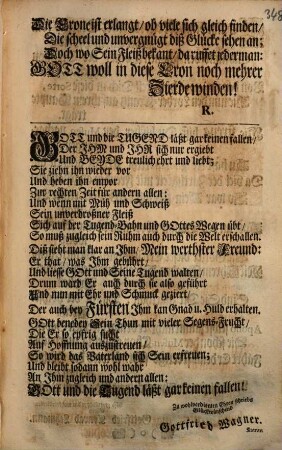 348
Die Crone ist erlangt/ ob viele sich gleich finden/
Die scheel und unvergnügt diß Glücke sehen an;
Doch wo Sein Fleiß bekant/ da ruffet jederman:
GOTT woll in diese Cron noch mehrer
Zierde winden!
R.
GOTT und die TUGEND läßt gar keinen fallen/
Der JHM und JHR sich nur ergiebt
Und BEYDE treulich ehrt und liebt;
Sie ziehn ihn wieder vor
Und heben ihn empor
Zur rechten Zeit für andern allen:
Und wenn mit Müh und Schweiß
Sein unverdroßner Fleiß
Sich auf der Tugend-Bahn und GOttes Wegen übt/
So muß zugleich sein Ruhm auch durch die Welt erschallen.
Diß sieht man klar an Jhm/ Mein werthster Freund:
Er that/ was Jhm gebührt/
Und liesse GOtt und Seine Tugend walten/
Drum ward Er auch durch sie also geführt
Und nun mit Ehr und Schmuck geziert
Der auch bey Fürsten Jhm kan Gnad u. Huld erhalten.
GOtt benedey Sein Thun mit vieler Segens-Frucht/
Die Er so eyfrig sucht
Auf Hoffnung auszustreuen/
So wird das Vaterland sich Sein erfreuen;
Und bleibt sodann wohl wahr
An Jhm zugleich und andern allen:
GOtt und die Tugend läßt gar keinen fallen!
Zu wohlverdienten Ehren schriebs
Glückwünschend
Gottfried Wagner.